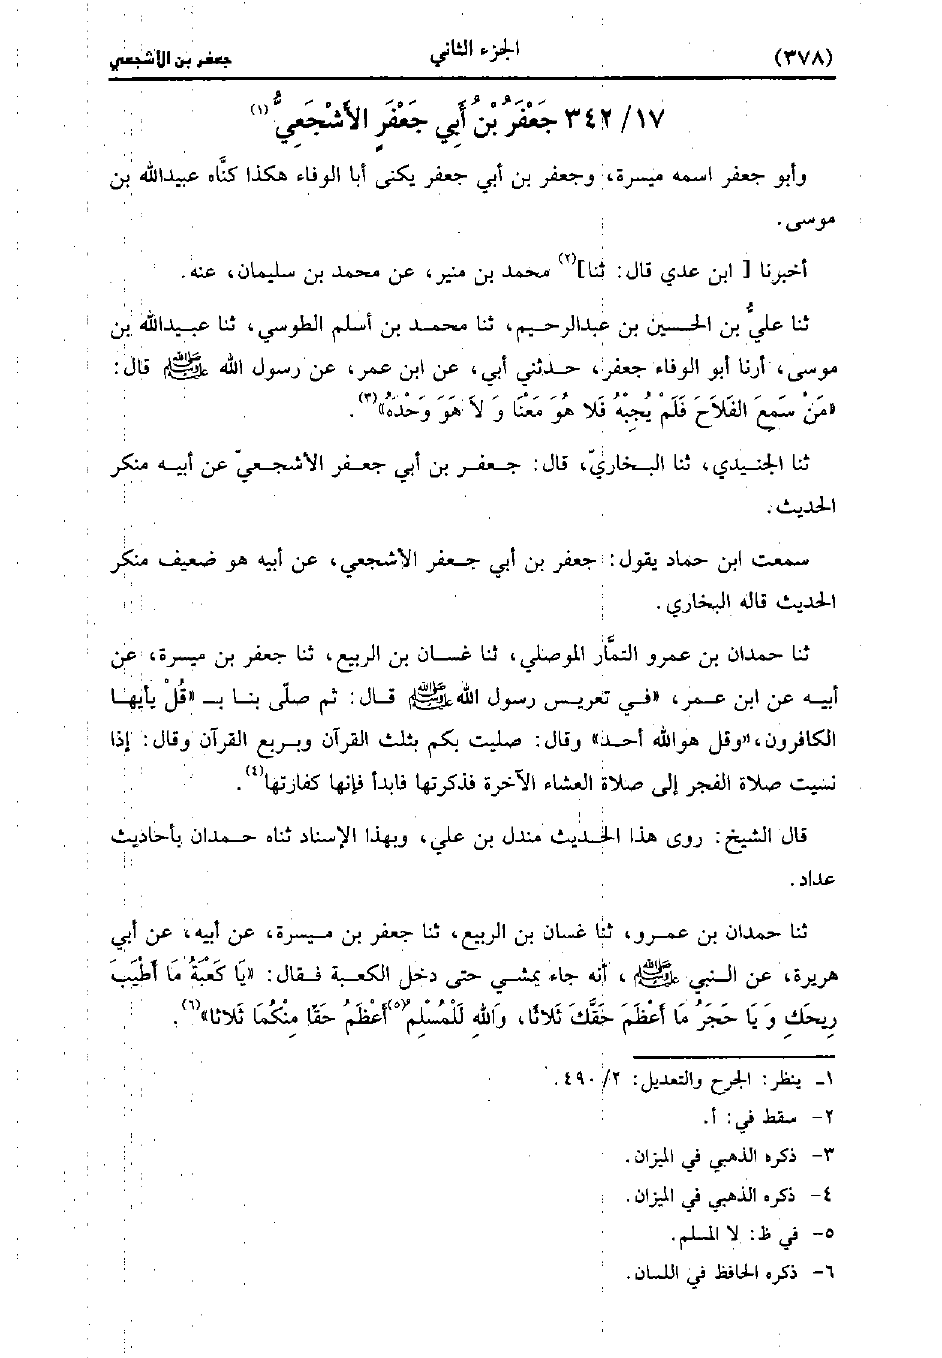 (٣٧٨) الجزء الثاني جعفر بن الأشجعي
٣٤٢/١٧ جَعْفَرُ بْنُ أَبِي جَعْفَرٍ الأَشْجَعِيُّ(١)
وأبو جعفر اسمه ميسرة، وجعفر بن أبي جعفر يكنى أبا الوفاء هكذا كنَّاه عبيدالله بن
موسى.
أخبرنا [ ابن عدي قال: ثنا](٢) محمد بن منير، عن محمد بن سليمان، عنه.
ثنا عليُّ بن الحسين بن عبدالرحيم، ثنا محمد بن أسلم الطوسي، ثنا عبيدالله بن
موسى، أرنا أبو الوفاء جعفر، حدثني أبي، عن ابن عمر، عن رسول الله ﷺ قال:
«مَنْ سَمِعَ الفَلاَحَ فَلَمْ يُجِبْهُ فَلا هُوَ مَعْنَا وَ لاَ هَوَ وَحْدَهُ»(٣).
ثنا الجنيدي، ثنا البخاريّ، قال: جعفر بن أبي جعفر الأشجعيّ عن أبيه منكر
الحديث.
سمعت ابن حماد يقول: جعفر بن أبي جعفر الأشجعي، عن أبيه هو ضعيف منكر
الحديث قاله البخاري.
ثنا حمدان بن عمرو التمَّار الموصلي، ثنا غسان بن الربيع، ثنا جعفر بن ميسرة، عن
أبيه عن ابن عمر، «في تعريس رسول الله ﷺ قال: ثم صلّى بنا بـ «قُلْ يأيها
الكافرون،«وقل هوالله أحد» وقال: صليت بكم بثلث القرآن وبربع القرآن وقال: إذا
نسيت صلاة الفجر إلى صلاة العشاء الآخرة فذكرتها فابدأ فإنها كفارتها(٤).
قال الشيخ: روى هذا الحديث مندل بن علي، وبهذا الإسناد ثناه حمدان بأحاديث
عداد.
ثنا حمدان بن عمرو، ثنا غسان بن الربيع، ثنا جعفر بن ميسرة، عن أبيه، عن أبي
هريرة، عن النبي ﷺ، أنه جاء يمشي حتى دخل الكعبة فقال: «يَا كَعْبَةُ مَا أَطْيَبَ
رِيحَكِ وَ يَا حَجَرُ مَا أَعْظَمَ حَقَّكَ ثَلاَثًا، وَاللهِ لَلْمُسْلِمُ(٥)أَعْظَمُ حَقًا مِنْكُمَا ثَلاثا»(٦).
١ـ ينظر: الجرح والتعديل: ٤٩٠/٢.
٢- سقط في: أ.
٣- ذكره الذهبي في الميزان.
٤- ذكره الذهبي في الميزان.
٥- في ظ: لا المسلم.
٦- ذكره الحافظ في اللسان.